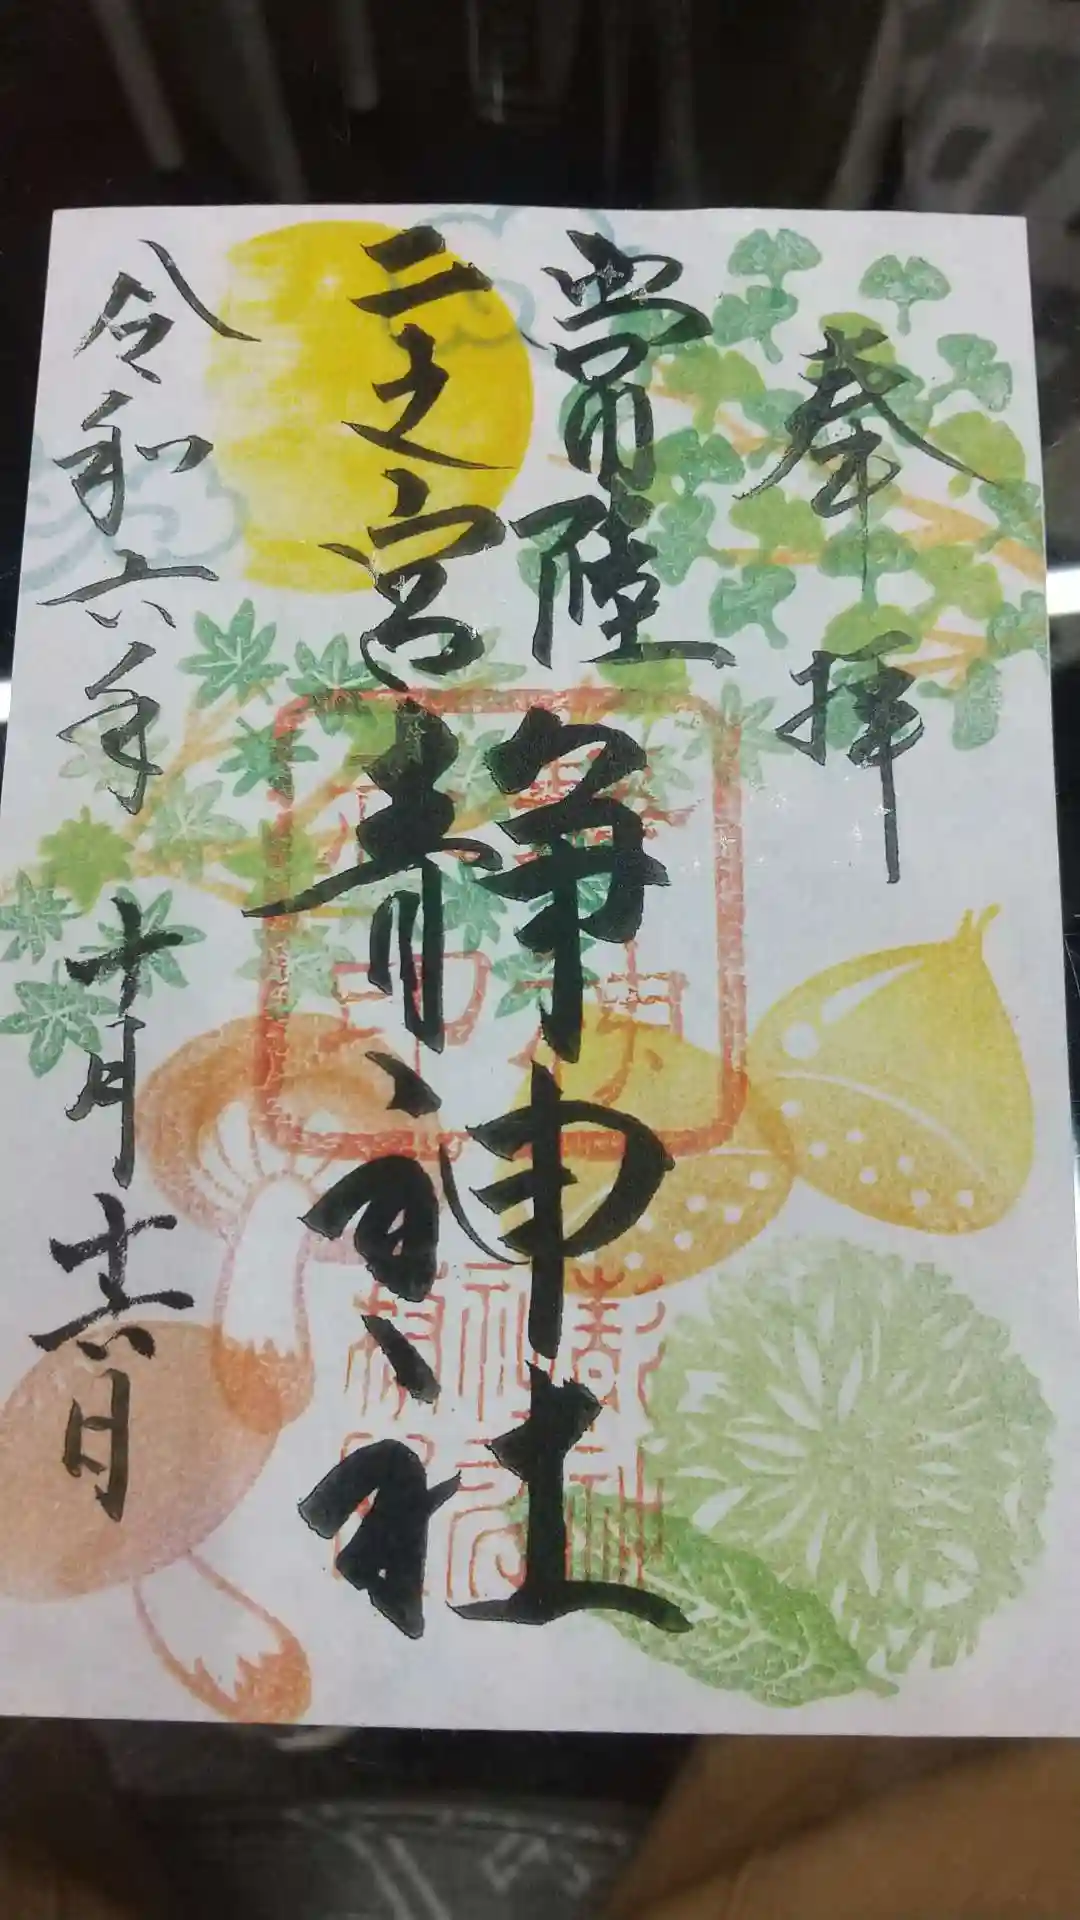 奉拝
常陸
二之宮
静神社
令和六年
十月十六日